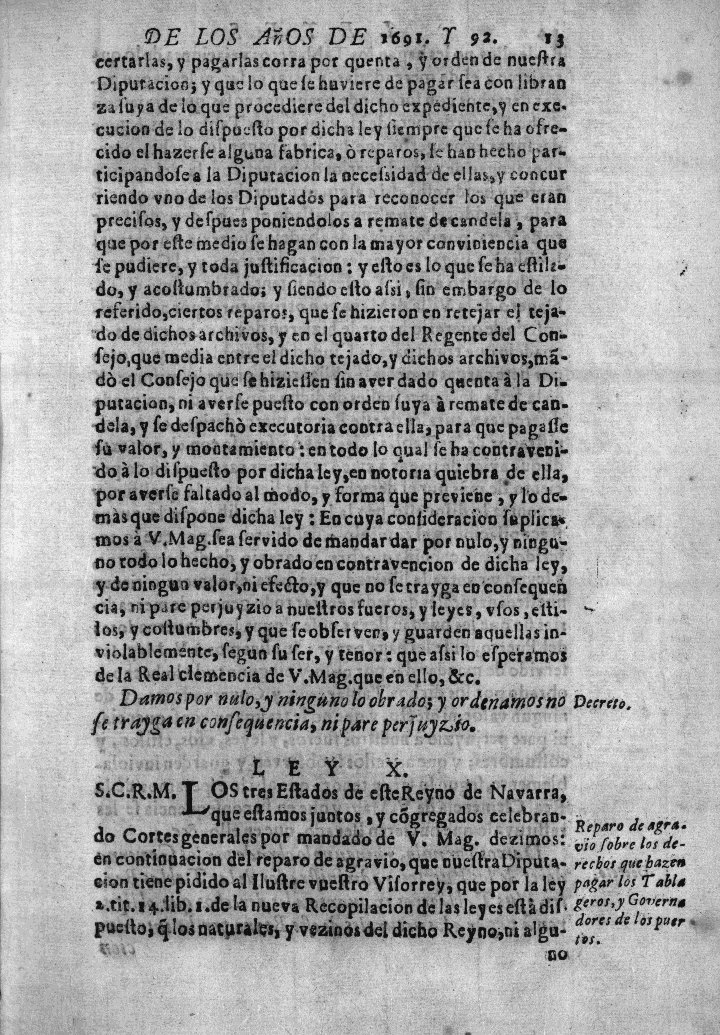 DE LOS AñOS DE 1691. Y 92. 13
certarlas, y pagarlas corra por quenta, y orden de nuestra
Diputacion; y que lo que se huviere de pagar sea con libran
za suya de lo que procediere del dicho expediente, y en exe-
cucion de lo dispuesto por dicha ley siempre que se ha ofre-
cido el hazerse alguna fabrica, ò reparos, se han hecho par-
ticipandose a la Diputacion la necessidad de ellas, y concur
riendo vno de los Diputados para reconocer los que eran
precisos, y despues poniendolos a remate de candela, para
que por este medio se hagan con la mayor conviniencia que
se pudiere, y toda justificacion: y esto es lo que se ha estila-
do, y acostumbrado; y siendo esto assi, sin embargo de lo
referido, ciertos reparos, que se hizieron en retejar el teja-
do de dichos archivos, y en el quarto del Regente del Con-
sejo, que media entre el dicho tejado, y dichos archivos, mã-
dò el Consejo que se hiziessen sin aver dado quenta à la Di-
putacion, ni averse puesto con orden suya à remate de can-
dela, y se despachò executoria contra ella, para que pagasse
su valor, y montamiento: en todo lo qual se ha contraveni-
do à lo dispuesto por dicha ley, en notoria quiebra de ella,
por averse faltado al modo, y forma que previene, y lo de-
màs que dispone dicha ley: En cuya consideracion suplica-
mos à V. Mag. sea servido de mandar dar por nulo, y ningu-
no todo lo hecho, y obrado en contravencion de dicha ley,
y de ningun valor, ni efecto, y que no se trayga en consequen
cia, ni pare perjuyzio a nuestros fueros, y leyes, vsos, esti-
los, y costumbres, y que se observen, y guarden aquellas in-
violablemente, segun su ser, y tenor: que assi lo esperamos
de la Real clemencia de V. Mag. que en ello, &c.
Damos por nulo, y ninguno lo obrado; y ordenamos no
se trayga en consequencia, ni pare perjuyzio.
Decreto.
LEY X.
S.C.R.M. LOS tres Estados de este Reyno de Navarra,
que estamos juntos, y cõgregados celebran-
do Cortes generales por mandado de V. Mag. dezimos:
en continuacion del reparo de agravio, que nuestra Diputa-
cion tiene pidido al Ilustre vuestro Visorrey, que por la ley
2. tit. 14. lib. 1. de la nueva Recopilacion de las leyes està dis
puesto, q̃ los naturales, y vezinos del dicho Reyno, ni algu-
no
Reparo de agra-
vio sobre los de-
rechos que hazen
pagar los Tabla
geros, y Governa
dores de los puer
tos.